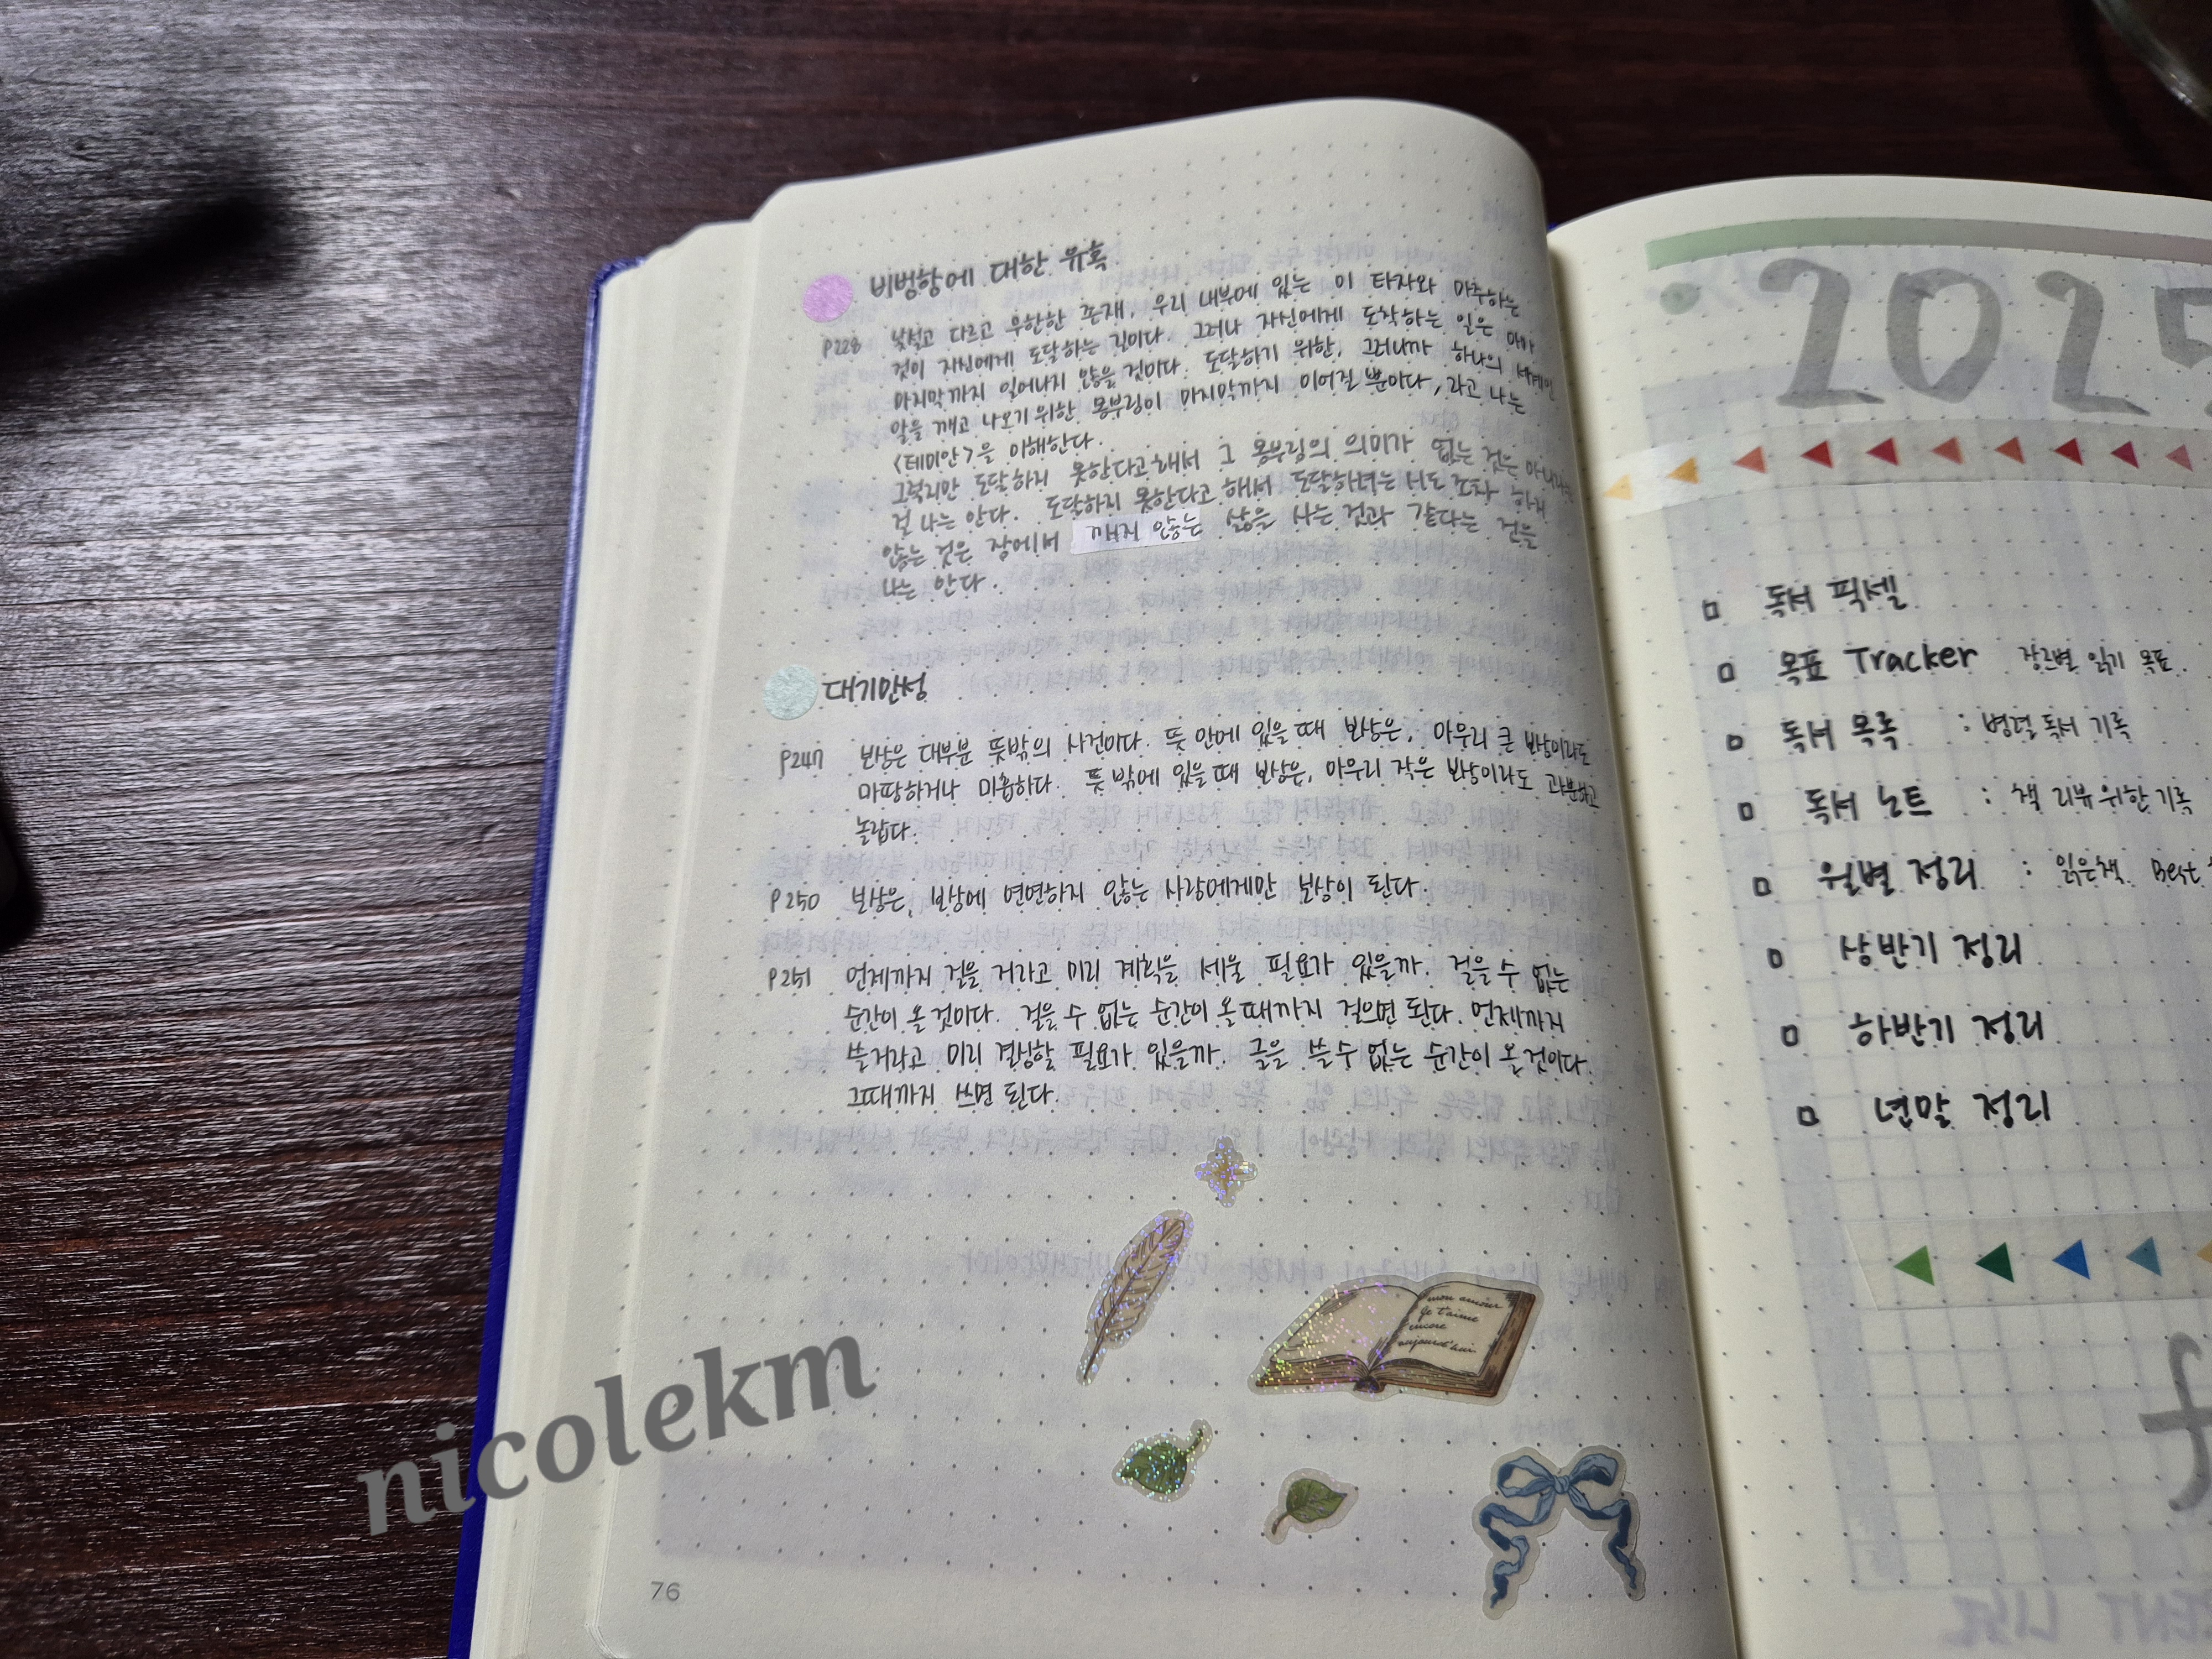 비범함에 대한 유혹
p228 낯설고 다르고 무한한 존재, 우리 내부에 있는 이 타자와 마주하는
것이 자신에게 도달하는 길이다. 그러나 자신에게 도착하는 일은 아마
마지막까지 일어나지 않을 것이다. 도달하기 위한, 그러니까 하나의 세계인
알을 깨고 나오기 위한 몸부림이 마지막까지 이어질 뿐이다, 라고 나는
<데미안>을 이해한다.
그렇지만 도달하지 못한다고 해서 그 몸부림의 의미가 없는 것은 아니라는
걸 나는 안다. 도달하지 못한다고 해서 도달하려는 시도조차 하지
않는 것은 잠에서 깨지 않는 삶을 사는 것과 같다는 건을
나는 안다.
대기만성
p247 보상은 대부분 뜻밖의 사건이다. 뜻 안에 있을 때 보상은, 아무리 큰 보상이라도
마땅하거나 미흡하다. 뜻 밖에 있을 때 보상은, 아무리 작은 보상이라도 과분하고
놀랍다.
P250 보상은, 보상에 연연하지 않는 사람에게만 보상이 된다.
P251 언제까지 걸을 거라고 미리 계획을 세울 필요가 있을까. 걸을 수 없는
순간이 올 것이다. 걸을 수 없는 순간이 올 때까지 걸으면 된다. 언제까지
쓸거라고 미리 결심할 필요가 있을까. 글을 쓸 수 없는 순간이 올 것이다.
그때까지 쓰면 된다.
mon amour
Je t'aime
encore
aujourd'hui
76
nicolekm
2025
독서 픽셀
목표 Tracker 장르별 읽기 목표
독서 목록 : 병렬 독서 기록
독서 노트 : 책 리뷰 위한 기록
월별 정리 : 읽은책 Best
상반기 정리
하반기 정리
년말 정리